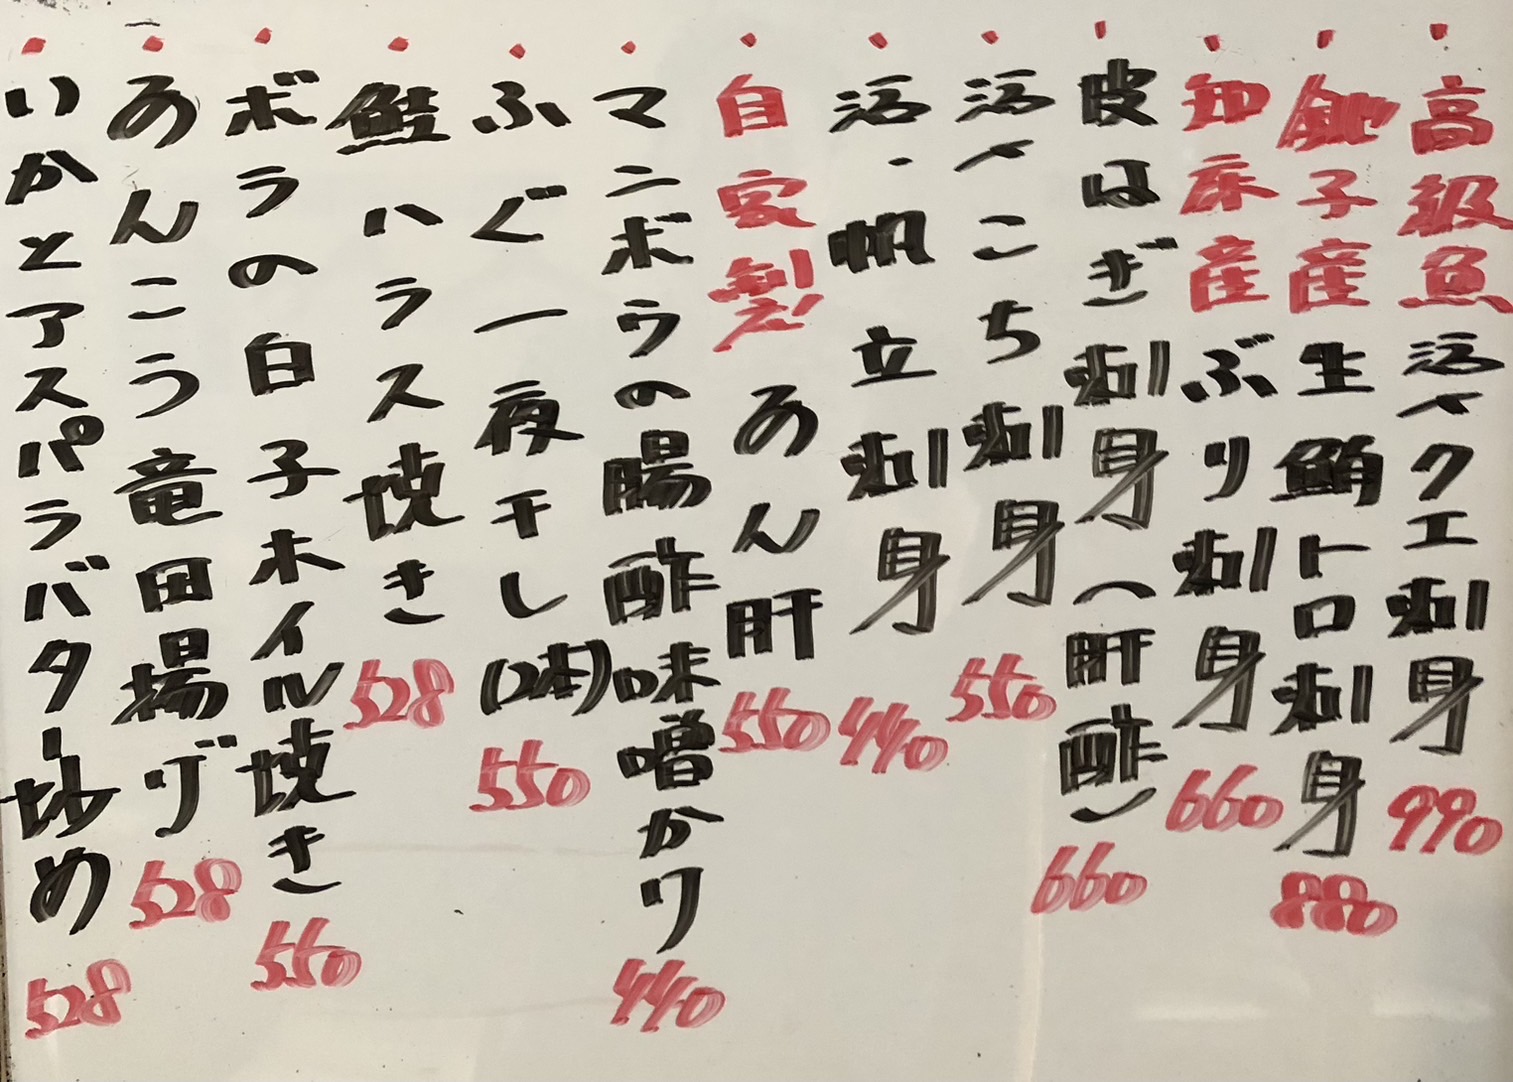 ・高級魚 活〆クエ刺身 990
・銚子産 生鮪トロ刺身 880
・知床産 ぶり刺身 660
・皮はぎ刺身(肝酢) 660
・活〆こち刺身 550
・活・帆立刺身 440
・自家製 あん肝 550
・マンボウの腸酢味噌かけ 440
・ふぐ一夜干し(2本) 550
・鮭ハラス焼き 528
・ボラの白子ホイル焼き 550
・あんこう竜田揚げ 528
・いかとアスパラバター炒め 528